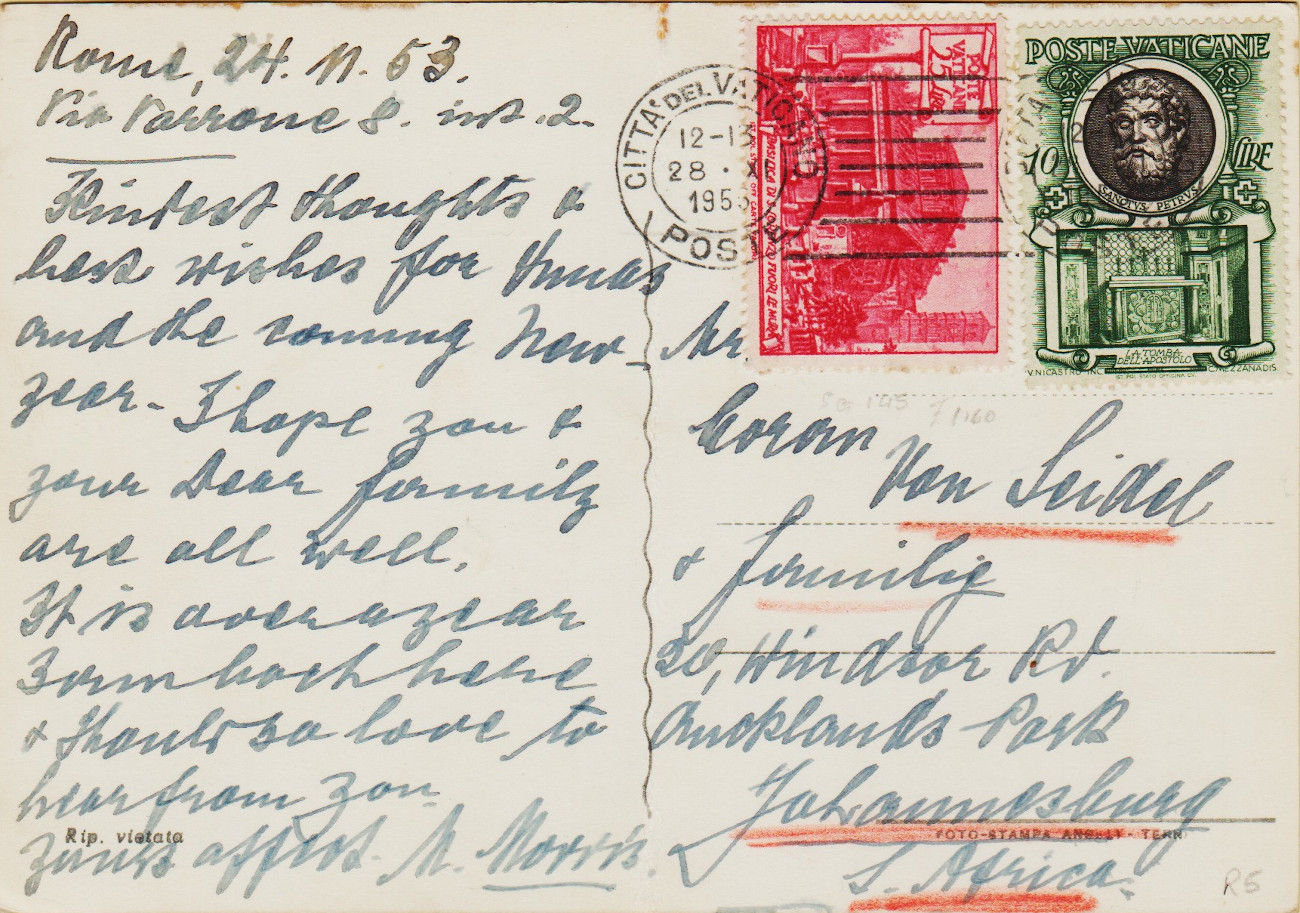 Rome, 24. 11. 53.
Via Varrone 8. int. 2.
Kindest thoughts &
best wishes for Xmas
and the coming New
year - I hope you &
your Dear family
are all well.
It is over a year
I am back here
& should so love to
hear from you
yours affect. M. Morris.
Rip. vietata
CITTA' DEL VATICANO
12-13
28 · XI
1953
POSTE
POSTE
VATICANE
25 LIRE
BASILICA DI S. LORENZO FUORI LE MURA
POSTE VATICANE
10 LIRE
SANCTVS PETRVS
LA TOMBA
DELL'APOSTOLO
V. NICASTRO INC.
C. MEZZANA DIS.
Mr
Goran
Von Seidel
& family
30, Windsor Rd.
Aucklands Park
Johannesburg
S. Africa.
SG 145
FOTO-STAMPA ANGELI - TERNI
R5